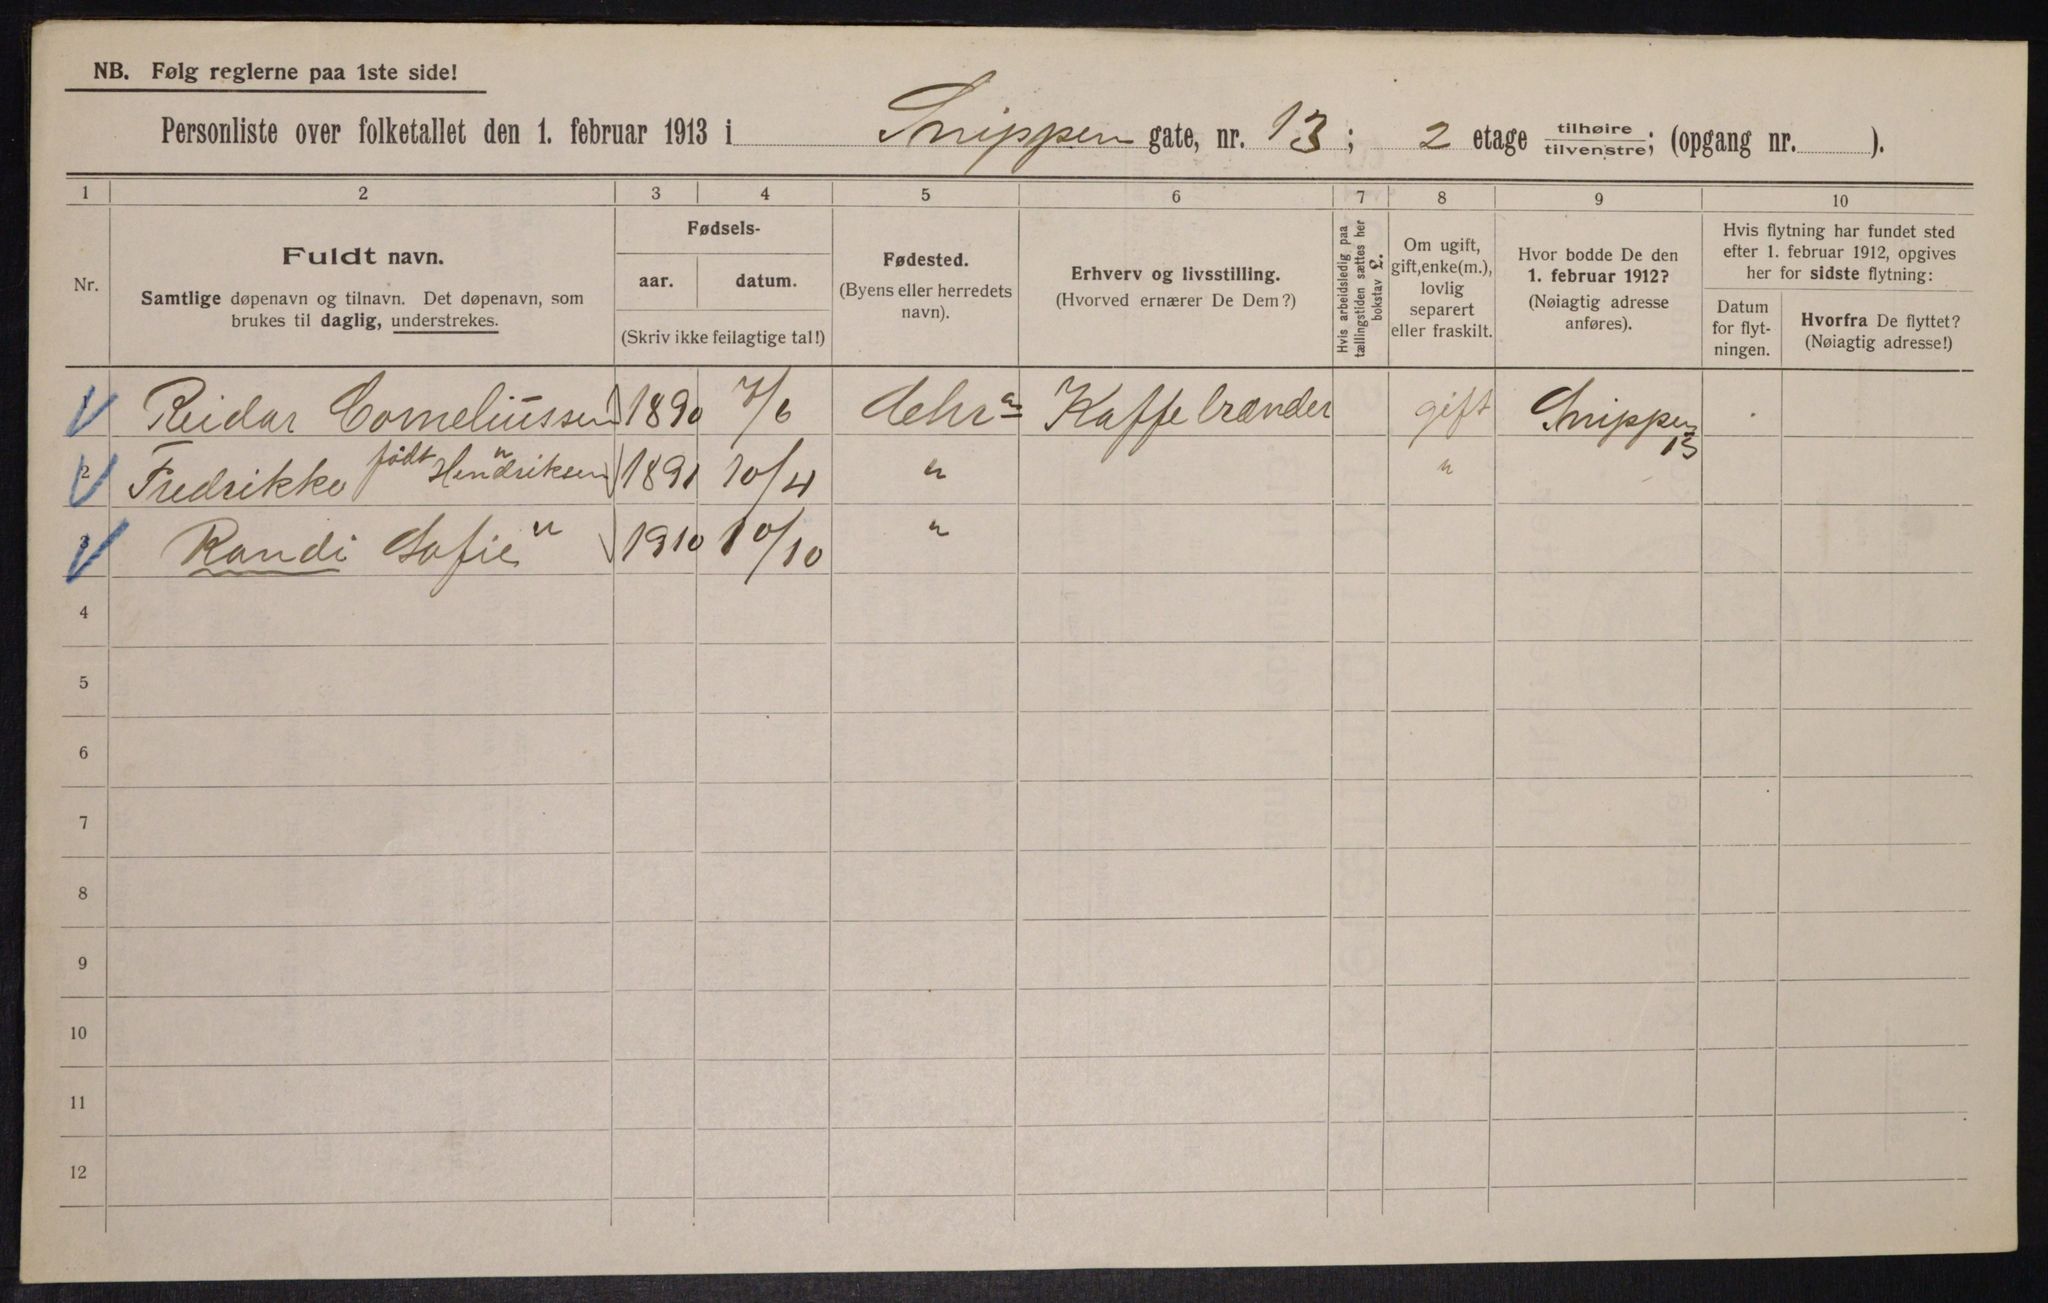 NB. Følg reglerne paa 1ste side!
Personliste over folketallet den 1. februar 1913 i Snippen gate, nr. 13; 2 etage tilhøire tilvenstre; (opgang nr. ).
1 2 3 4 5 6 7 8 9 10
Nr.
Fuldt navn.
Samtlige døpenavn og tilnavn. Det døpenavn, som
brukes til daglig, understrekes.
Fødsels-
aar. datum.
(Skriv ikke feilagtige tal!)
Fødested.
(Byens eller herredets
navn).
Erhverv og livsstilling.
(Hvorved ernærer De Dem?)
Hvis arbeidsledig paa
tællingstiden sættes her
bokstav L.
Om ugift,
gift, enke(m.),
lovlig
separert
eller fraskilt.
Hvor bodde De den
1. februar 1912?
(Nøiagtig adresse
anføres).
Hvis flytning har fundet sted
efter 1. februar 1912, opgives
her for sidste flytning:
Datum
for flyt-
ningen.
Hvorfra De flyttet?
(Nøiagtig adresse!)
1 Reidar Corneliussen 1890 7/6 Chra Kaffebrænder gift Snippen 13
2 Fredrikke " født Hendriksen 1891 10/4 " "
3 Randi Sofie " 1910 10/10 "
4
5
6
7
8
9
10
11
12